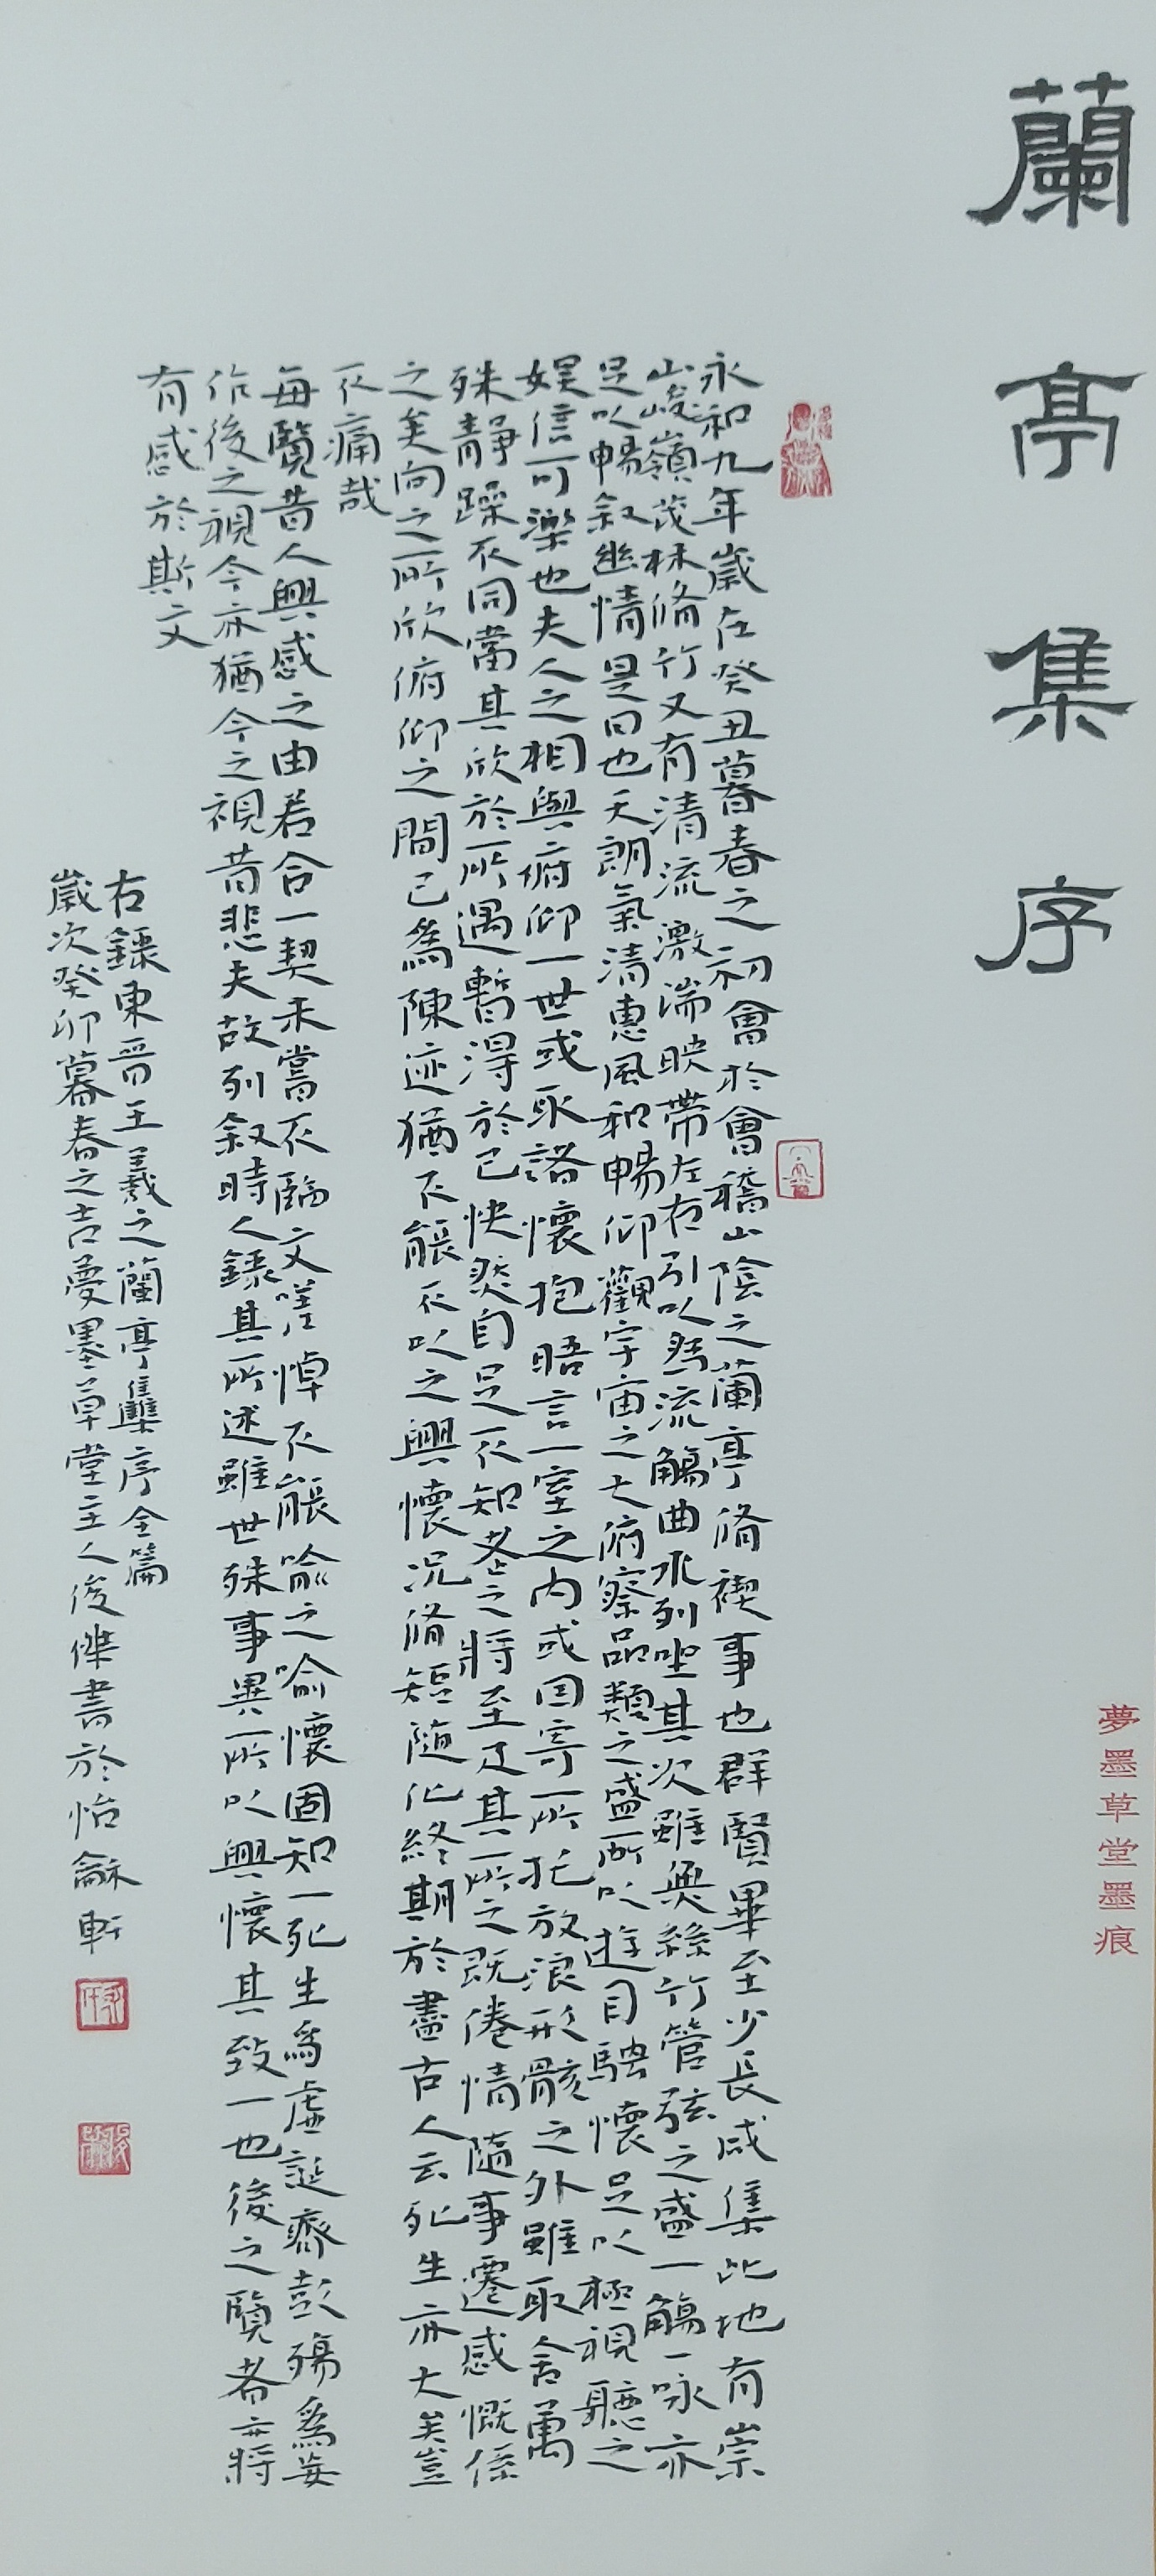 蘭亭集序
夢墨草堂墨痕
永和九年歲在癸丑暮春之初會於會稽山陰之蘭亭脩禊事也群賢畢至少長咸集此地有崇
山峻嶺茂林脩竹又有清流激湍映帶左右引以為流觴曲水列坐其次雖無絲竹管弦之盛一觴一咏亦
足以暢敘幽情是日也天朗氣清惠風和暢仰觀宇宙之大俯察品類之盛所以遊目騁懷足以極視聽之
娛信可樂也夫人之相與俯仰一世或取諸懷抱晤言一室之內或因寄所托放浪形骸之外雖取舍萬
殊靜躁不同當其欣於所遇暫得於己快然自足不知老之將至及其所之既倦情隨事遷感慨係
之矣向之所欣俯仰之間已為陳迹猶不能不以之興懷況脩短隨化終期於盡古人云死生亦大矣豈
不痛哉
每覽昔人興感之由若合一契未嘗不臨文嗟悼不能喻之喻懷固知一死生為虛誕齊彭殤為妄
作後之視今亦猶今之視昔悲夫故列敘時人錄其所述雖世殊事異所以興懷其致一也後之覽者亦將
有感於斯文
右錄東晉王羲之蘭亭集序全篇
歲次癸卯暮春之吉夢墨草堂主人俊傑書於怡龢軒